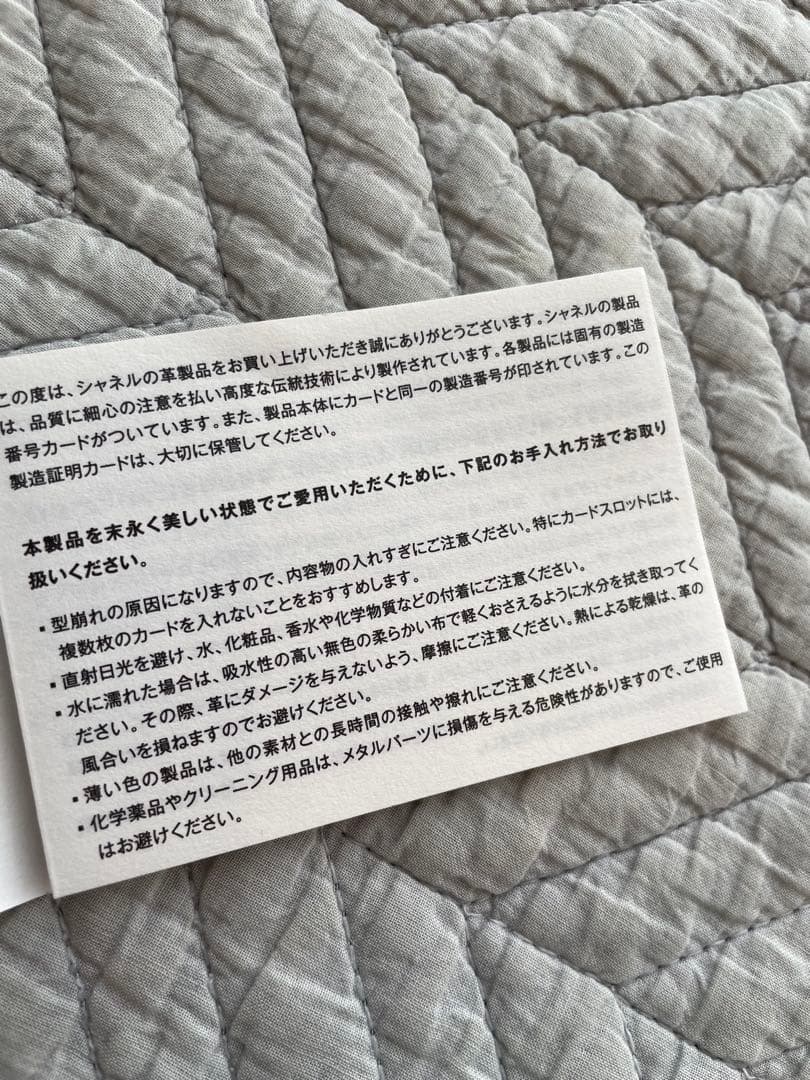 この度は、シャネルの革製品をお買い上げいただき誠にありがとうございます。シャネルの製品
は、品質に細心の注意を払い高度な伝統技術により製作されています。各製品には固有の製造
番号カードがついています。また、製品本体にカードと同一の製造番号が印されています。この
製造証明カードは、大切に保管してください。
本製品を末永く美しい状態でご愛用いただくために、下記のお手入れ方法でお取り
扱いください。
▪ 型崩れの原因になりますので、内容物の入れすぎにご注意ください。特にカードスロットには、
複数枚のカードを入れないことをおすすめします。
▪ 直射日光を避け、水、化粧品、香水や化学物質などの付着にご注意ください。
▪ 水に濡れた場合は、吸水性の高い無色の柔らかい布で軽くおさえるように水分を拭き取ってく
ださい。その際、革にダメージを与えないよう、摩擦にご注意ください。熱による乾燥は、革の
風合いを損ねますのでお避けください。
▪ 薄い色の製品は、他の素材との長時間の接触や擦れにご注意ください。
▪ 化学薬品やクリーニング用品は、メタルパーツに損傷を与える危険性がありますので、ご使用
はお避けください。